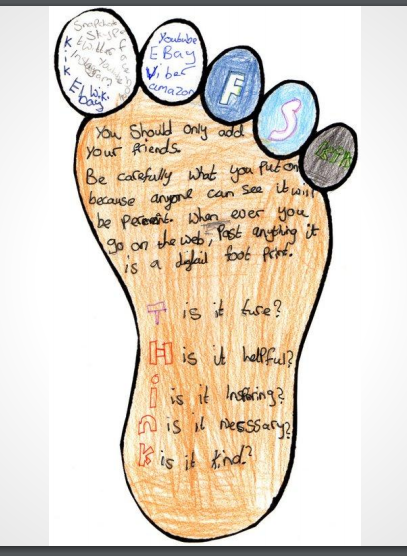 Snapchat
Skype
twitter
Youtube
Instagram
Kik
Wiki
Ebay
Youtube
EBay
Viber
amazon
F
S
KIK
You Should only add
your friends
Be carefully what you put on
because anyone can see it will
be
When ever you
go on the web, Post anything it
is a digtail foot Print.
T is it ture?
H is it helpful?
i is it Inspiring?
n is it nessary?
k is it kind?